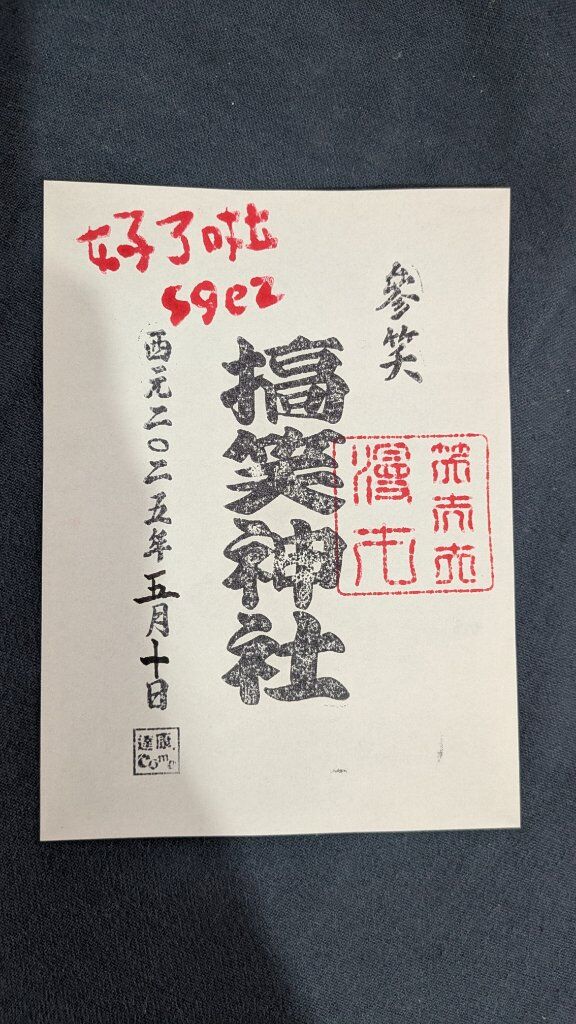 好了啦
sgez
參笑
搞笑神社
西元二〇二五年五月十日
達康.
Come